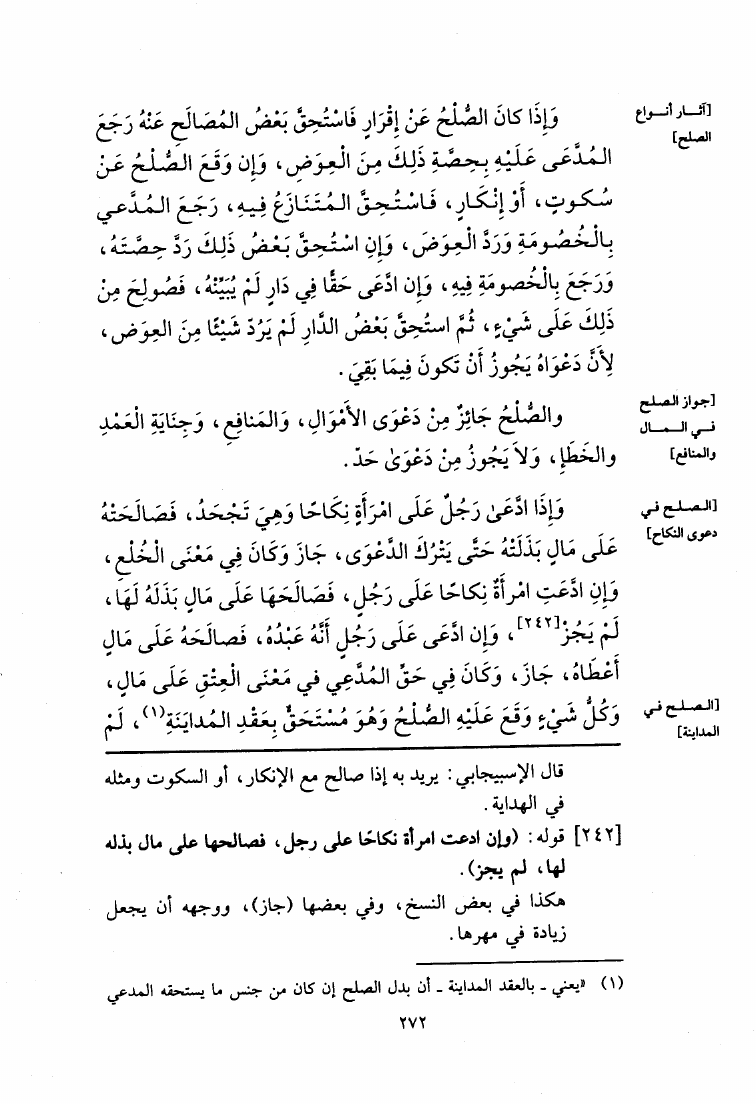 [آثـار أنـواع
الصلح]
وَإِذَا كانَ الصُّلْحُ عَنْ إِقْرَارٍ فَاسْتُحِقَّ بَعْضُ المُصَالَحِ عَنْهُ رَجَعَ
المُدَّعَى عَلَيْهِ بِحِصَّةِ ذَلِكَ مِنَ الْعِوَضِ، وَإن وَقَعَ الصُّلْحُ عَنْ
سُكوتٍ، أَوْ إِنْكَارٍ، فَاسْتُحِقَّ المُتَنَازَعُ فِيهِ، رَجَعَ المُدَّعي
بِالْخُصُومَةِ وَرَدَّ الْعِوَضَ، وَإِنِ اسْتُحِقَّ بَعْضُ ذَلِكَ رَدَّ حِصَّتَهُ،
وَرَجَعَ بِالْخُصومَةِ فِيهِ، وَإن ادَّعَى حَقًّا فِي دَارٍ لَمْ يُبَيِّنْهُ، فَصُولِحَ مِنْ
ذَلِكَ عَلَى شَيْءٍ، ثُمَّ استُحِقَّ بَعْضُ الدَّارِ لَمْ يَرُدّ شَيْئًا مِنَ العِوَض،
لِأَنَّ دَعْوَاهُ يَجُوزُ أَنْ تَكونَ فِيمَا بَقِيَ.
[جواز الصلح
فـي الـمـال
والمنافع]
والصُّلْحُ جَائِزٌ مِنْ دَعْوَى الأَمْوَالِ، وَالمَنافِعِ، وَجِنَايَةِ الْعَمْدِ
والخَطَإِ، وَلاَ يَجُوزُ مِنْ دَعْوَىٰ حَدّ.
[الـصـلـح في
دعوى النكاح]
وَإِذَا ادَّعَىٰ رَجُلٌ عَلَى امْرَأَةٍ نِكَاحًا وَهِيَ تَجْحَدُ، فَصَالَحَتْهُ
عَلَى مَالٍ بَذَلَتْهُ حَتَّى يَتْرُكَ الدَّعْوَى، جَازَ وَكَانَ فِي مَعْنَى الْخُلْعِ،
وَإِن ادَّعَتِ امْرأَةٌ نِكاحًا عَلَى رَجُلٍ، فَصَالَحَهَا عَلَى مَالٍ بَذَلَهُ لَهَا،
لَمْ يَجُزْ[٢٤٢]، وَإن ادَّعَى عَلَى رَجُلٍ أَنَّهُ عَبْدُهُ، فَصالَحَهُ عَلَى مَالٍ
أَعْطَاهُ، جَازَ، وَكَانَ فِي حَقِّ المُدَّعِي في مَعْنَى الْعِتْقِ عَلَى مَالٍ،
[الـصـلـح فـي
المداينة]
وَكُلُّ شَيْءٍ وَقَعَ عَلَيْهِ الصُّلْحُ وَهُوَ مُسْتَحَقٌّ بِعَقْدِ المُدايَنَةِ(١)، لَمْ
قال الإسبيجابي: يريد به إذا صالح مع الإنكار، أو السكوت ومثله
في الهداية.
[٢٤٢] قوله: (وإن ادعت امرأة نكاحًا على رجل، فصالحها على مال بذله
لها، لم يجز).
هكذا في بعض النسخ، وفي بعضها (جاز)، ووجهه أن يجعل
زيادة في مهرها.
(١) «يعني ـ بالعقد المداينة ـ أن بدل الصلح إن كان من جنس ما يستحقه المدعي
٢٧٢